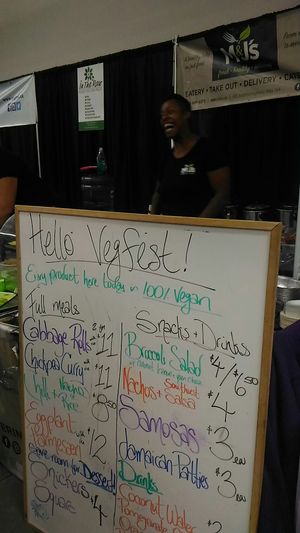 M&J's
EATERY • TAKE OUT • DELIVERY •
In The Raw
Hello Vegfest!
Every product here today is 100% Vegan
Full meals
Cabbage Rolls $11
Chickpea Curry $11
Chilli + Rice $8.50
Eggplant Parmesan $12
Save room for Dessert!
Snickers Square $4
Snacks + Drinks
Broccoli Salad $4/$6.50
Nachos + Salsa $4
Samosas $3 ea
Jamaican Patties $3 ea
Drinks
Coconut Water $2